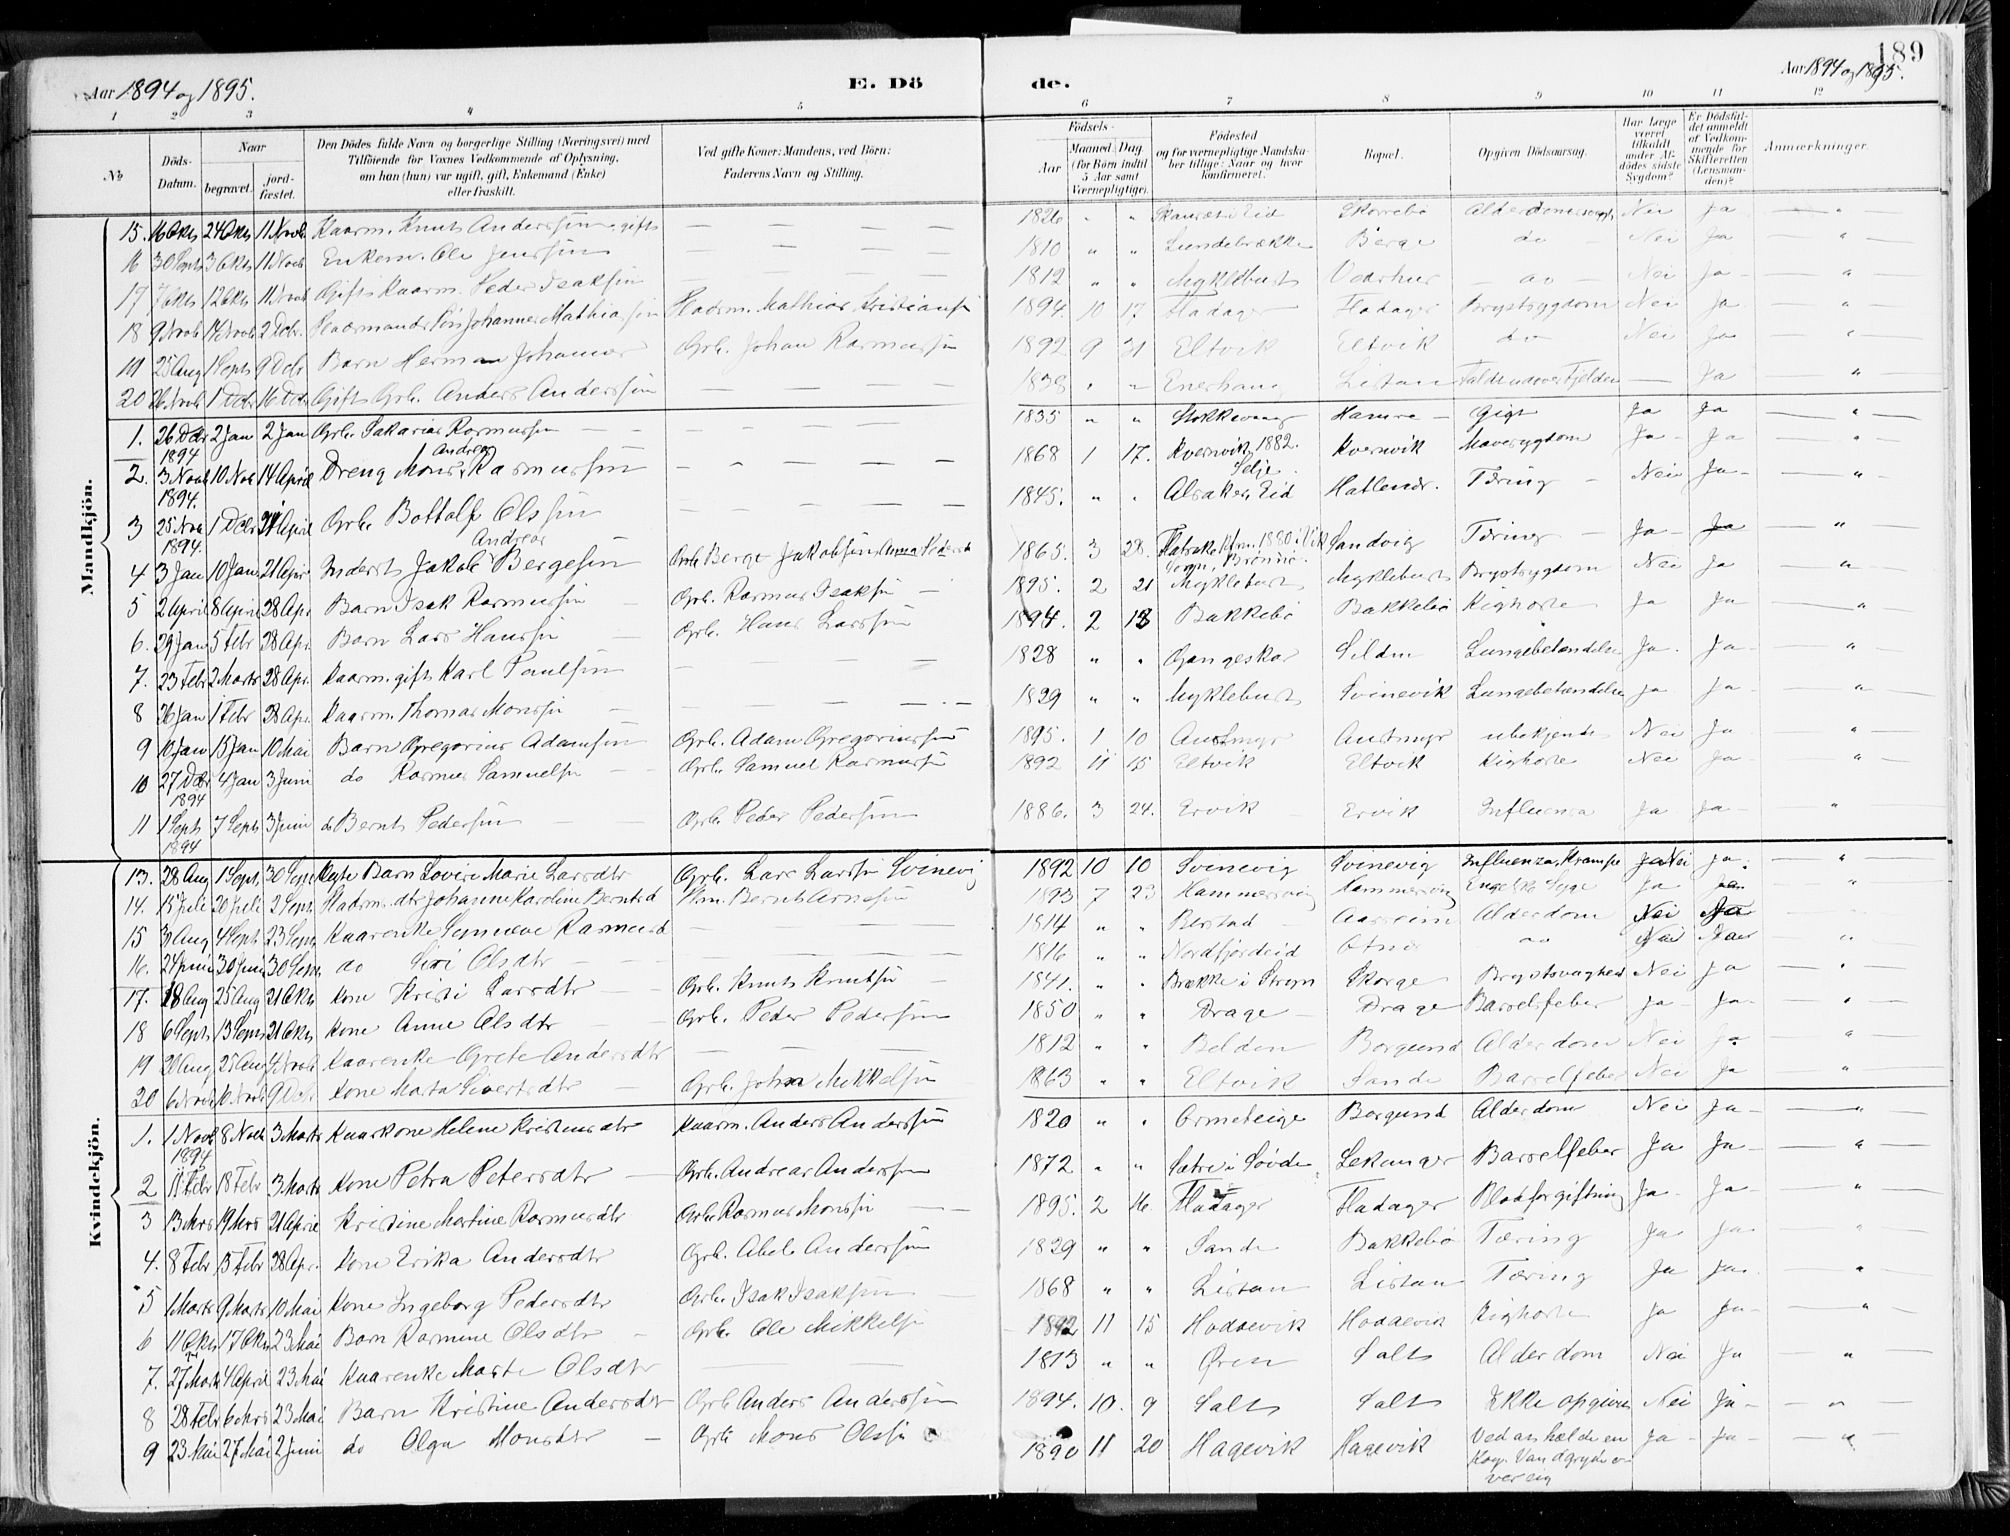 189
Aar 1894 og 1895. E. Dö de. Aar 1894 og 1895.
1 2 3 4 5 6 7 8 9 10 11 12
№ Döds-Datum. Naar begravet. jordfæstet. Den Dödes fulde Navn og borgerlige Stilling (Næringsvei) med Tilföiende for Voxnes Vedkommende af Oplysning, om han (hun) var ugift, gift, Enkemand (Enke) eller fraskilt. Ved gifte Koner: Mandens, ved Börn: Faderens Navn og Stilling. Födsels- Aar Maaned. Dag. (for Börn indtil 5 Aar samt Værnepligtige). Födested og for værnepligtige Mandskaber tillige: Naar og hvor konfirmeret. Bopæl. Opgiven Dödsaarsag. Har Læge været tilkaldt under Afdödes sidste Sygdom? Er Dödsfaldet anmeldt af Vedkommende for Skifteretten (Lensmanden)? Anmærkninger.
Mandkjön.
15. 16 Okt 24 Okt 11 Novb Kaarm. Knut Anderssøn gift — — — 1826 " " Eid Skorrebø Alderdomssvagh. Nei Ja "
16 30 Sept 3 Okt 11 Novb Enkem. Ole Jenssøn — — — 1810 " " Lundebrække Berge do Nei Ja "
17 7 Okt 12 Okt 11 Novb Gift Kaarm. Peder Isaksøn — — — 1812 " " Myklebust do Nei Ja "
18 9 Novb 14 Novb 2 Debr. Pladsmands Søn Johannes Mathiassøn Pladsm. Mathias Kristianss 1894 10 17 Fladager Fladager Brystsygdom Nei Ja "
19 25 Aug 1 Sept 9 Debr Barn Herman Johannes Grb. Johan Rasmussøn 1892 9 21 Eltvik Eltvik do Nei Ja "
20 26 Novb 1 Debr 16 Debr Gift Grb. Anders Anderssøn — — — 1838 " " Enerhaug Listau Faldt udover Fjelden — Ja "
1. 26 Debr 1894 2 Jan 2 Jan Grb. Sakarias Rasmussøn — — 1835 " " Stokkevaag Hamre Gigt Ja Ja "
2. 3 Novb 1894. 10 Nob 14 April Dreng Mons Andreas Rasmussøn — — — 1868 1 17. Kvernvik, 1882. Selje. Kvernvik Mavesygdom Ja Ja "
3 25 Nov 1894. 1 Debr 21 April Grb. Bottolf Olssøn — — — 1845. " " Alsaker, Eid Hatlenes. Tæring Nei Ja "
4 3 Jan 10 Jan 21 April Inderst Jakob Andreas Bergesøn Grb Berge Jakobsøn 1865. 3 28. 1880 i Vik Sogn, Sandvig Tæring Ja Ja "
5 2 April 8 April 28 Apr Barn Isak Rasmussøn Grb. Rasmus Isaksøn 1895. 2 21 Myklebust Myklebust Brystsygdom Nei Ja "
6. 29 Jan 5 Febr 28 Apr. Barn Lars Hanssøn Grb. Hans Larssøn 1894. 2 18 Bakkebø Bakkebø Kighoste Ja Ja "
7. 23 Febr 2 Marts 28 Apr. Kaarm. gift Karl Paulsøn — — — 1828 " " Gangeskar Lungebetændelse Ja Ja "
8 26 Jan 1 Febr 28 Apr. Kaarm. Thomas Monssøn — — — 1829 " " Myklebust Svinevik Lungebetændelse Ja Ja "
9 10 Jan 15 Jan 10 Mai Barn Gregorius Adamsøn Grb. Adam Gregoriussøn 1895. 1 10 Austmyr Austmyr ubekjendt Nei Ja "
10 27 Debr 1894 4 Jan 3 Juni do Rasmus Samuelsøn Grb. Samuel Rasmussøn 1892 11 15 Eltvik Eltvik Kighoste Nei Ja "
11 1 Sept 1894 7 Sept 3 Juni do Bernt Pedersøn Grb. Peder Pedersøn 1886. 3 24. Ervik Ervik Influenza Ja Ja "
Kvindekjön.
13. 28 Aug 1 Sept. 30 Sept Ægte Barn Lovise Marie Larsdtr Grb. Lars Larssøn Svinevig 1892 10 10 Svinevig Svinevig Influenza, Krampe Nei Ja "
14. 15 Juli 20 Juli 2 Sept. Pladsm. dtr Johanne Karoline Berntsd Plm. Bernt Arnesøn 1893 7 23 Hammersvig Hammersvig Engelsk Syge Ja "
15 3 Aug 4 Sept 23 Sept. Kaarenke Synnøve Rasmusd — — — 1814 " " Berstad Aarseim Alderdom Nei Ja
16. 24 Juni 30 Juni 30 Sept. do Siri Olsdtr — — — 1816 " " Nordfjordeid do Nei "
17. 18 Aug 25 Aug 21 Okt Kone Kristi Larsdtr Grb. Knut Knutsøn 1841. " " Brække i Stryn Skorge Brystsvaghed Nei Ja "
18 6 Sept. 13 Sept 21 Okt Kone Anne Olsdtr Grb. Peder Pedersøn 1850 " " Drage Drage Barselfeber Ja Ja "
19 20 Aug 25 Aug 4 Novb Kaarenke Grete Andersdtr — — — 1812 " " Belden Borgund Alderdom Nei Ja "
20 6 Novb 10 Novb 9 Debr Kone Marta Sivertsdtr Grb. John Mikkelsøn 1863 " " Eltvik Sande Barselfeber Nei Ja "
1. 1 Novb 1894 8 Nob 3 Marts Kaarkone Helene Kristensdtr Kaarm. Anders Anderssøn 1820 " " Ormeteige Borgund Alderdom Nei Ja "
2 11 Febr 18 Febr 3 Marts Kone Petra Petersdtr Grb. Andreas Anderssøn 1872 " " Sætre i Søvde Lekanger Barselfeber Ja Ja "
3 13 Mrs 19 Mrs 21 April Kristine Martine Rasmusdtr Grb. Rasmus Monssøn 1895. 2 16. Fladager Fladager Blodforgiftning Ja Ja "
4. 8 Febr 15 Febr 28 Apr. Kone Erika Andersdtr Grb. Abel Anderssøn 1829 " " Sande Bakkebø Tæring Ja Ja "
5 1 Marts 9 Marts 10 Mai Kone Ingeborg Pedersdtr Grb. Isak Isaksøn 1868 " " Listau Listau Tæring Ja Ja "
6 11 Okt 17 Okt 23 Mai Barn Rasmine Olsdtr Grb. Ole Mikkels 1892 11 15 Hoddevik Hoddevik Kighoste Ja Ja "
7. 27 Marts 4 April 23 Mai Kaarenke Marte Olsdtr — 1813 " " Øren Salt Alderdom Nei Ja "
8 28 Febr 6 Mrs 23 Mai Barn Kristine Andersdtr Grb Anders Anderssøn 1894. 10. 9 Salt Salt Ikke opgivet Nei Ja "
9 23 Mai 27 Mai 2 Juni do Olga Monsdtr Grb Mons Olssø 1890 11 20 Hagevik Hagevik Ved at hælde en Kog. Vandgryde over sig Ja Ja "